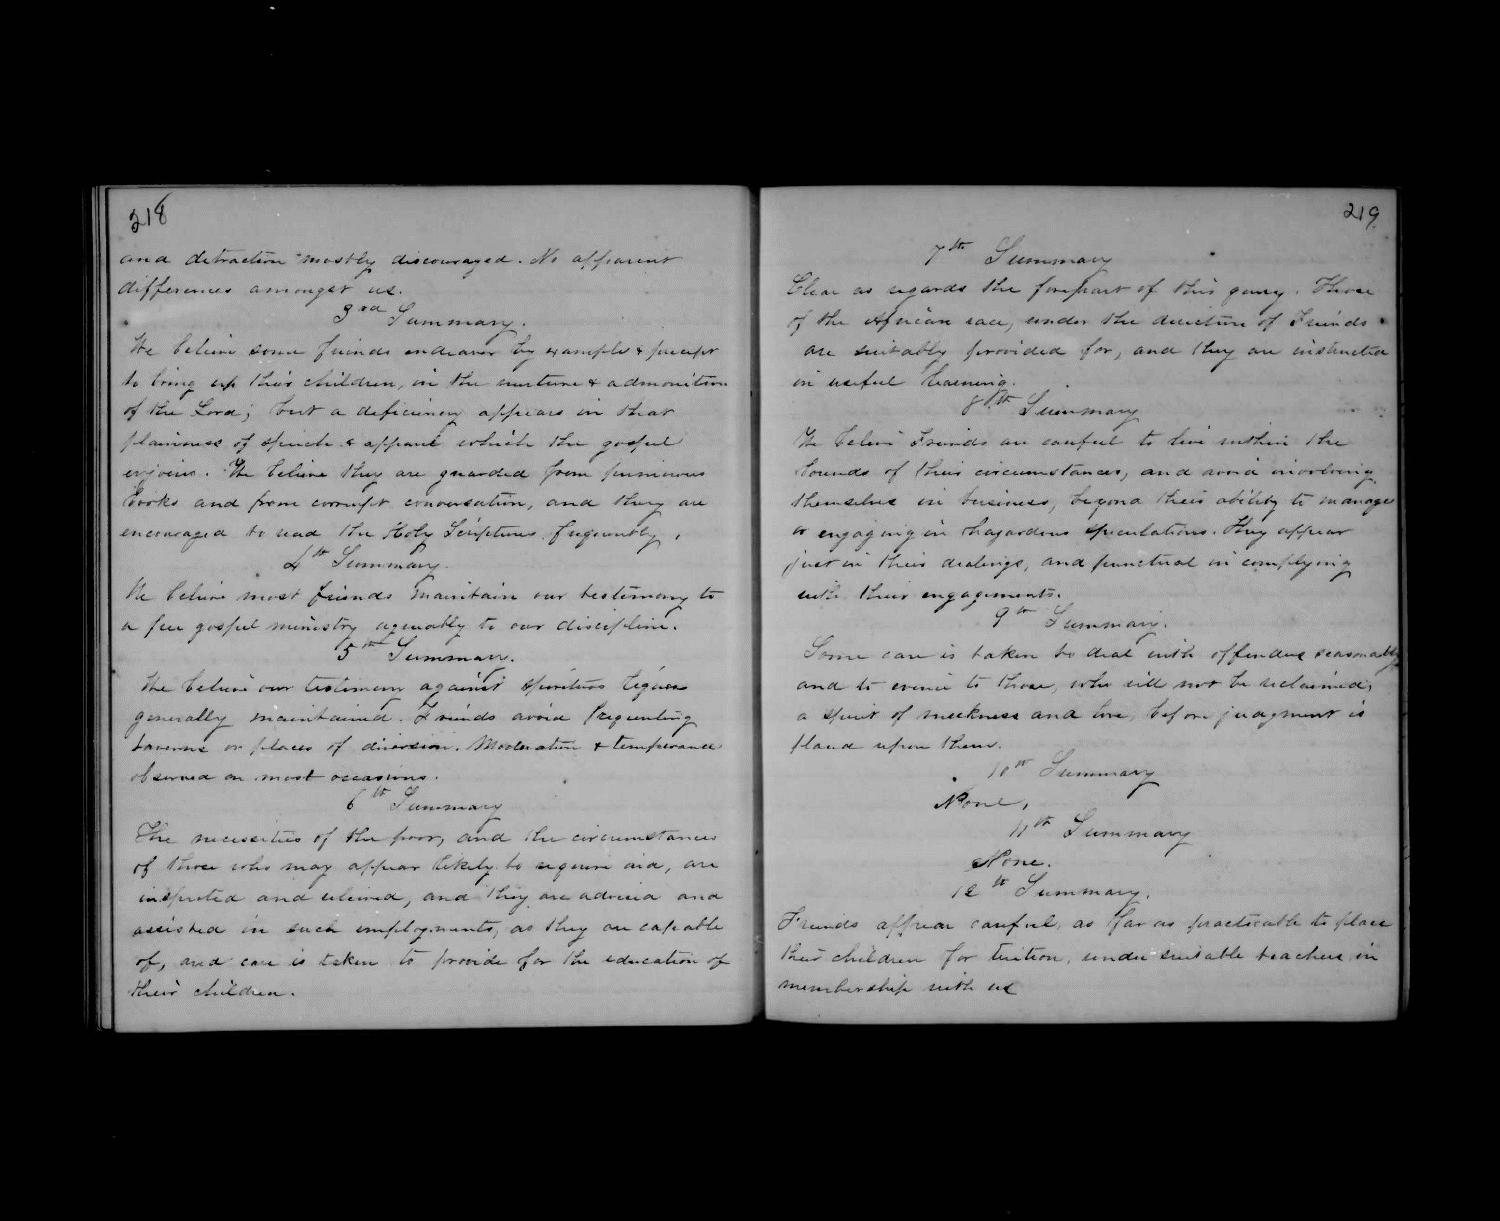 218
and detraction mostly discouraged. No apparent
differences amongst us.
3rd Summary.
We believe some friends endeavor by example & precept
to bring up their children, in the nurture & admonition
of the Lord; but a deficiency appears in that
plainness of speech & apparel which the gospel
enjoins. We believe they are guarded from pernicious
books and from corrupt conversation, and they are
encouraged to read the Holy Scriptures frequently.
4th Summary.
We believe most friends maintain our testimony to
a free gospel ministry agreeably to our discipline.
5th Summary.
We believe our testimony against spiritous liquors
generally maintained. Friends avoid frequenting
taverns or places of diversion. Moderation & temperance
observed on most occasions.
6th Summary
The necessities of the poor, and the circumstances
of those who may appear likely to require aid, are
inspected and relieved, and they are advised and
assisted in such employments, as they are capable
of, and care is taken to provide for the education of
their children.
219
7th Summary
Clear as regards the forepart of this query. Those
of the African race, under the direction of Friends
are suitably provided for, and they are instructed
in useful learning.
8th Summary
We believe Friends are careful to live within the
bounds of their circumstances, and avoid involving
themselves in business, beyond their ability to manage
or engaging in hazardous speculations. They appear
just in their dealings, and punctual in complying
with their engagements.
9th Summary.
Some care is taken to deal with offenders seasonably
and to evince to those, who will not be reclaimed,
a spirit of meekness and love, before judgment is
placed upon them.
10th Summary
None,
11th Summary
None.
12th Summary.
Friends appear careful, as far as practicable to place
their children for tuition, under suitable teachers in
membership with us